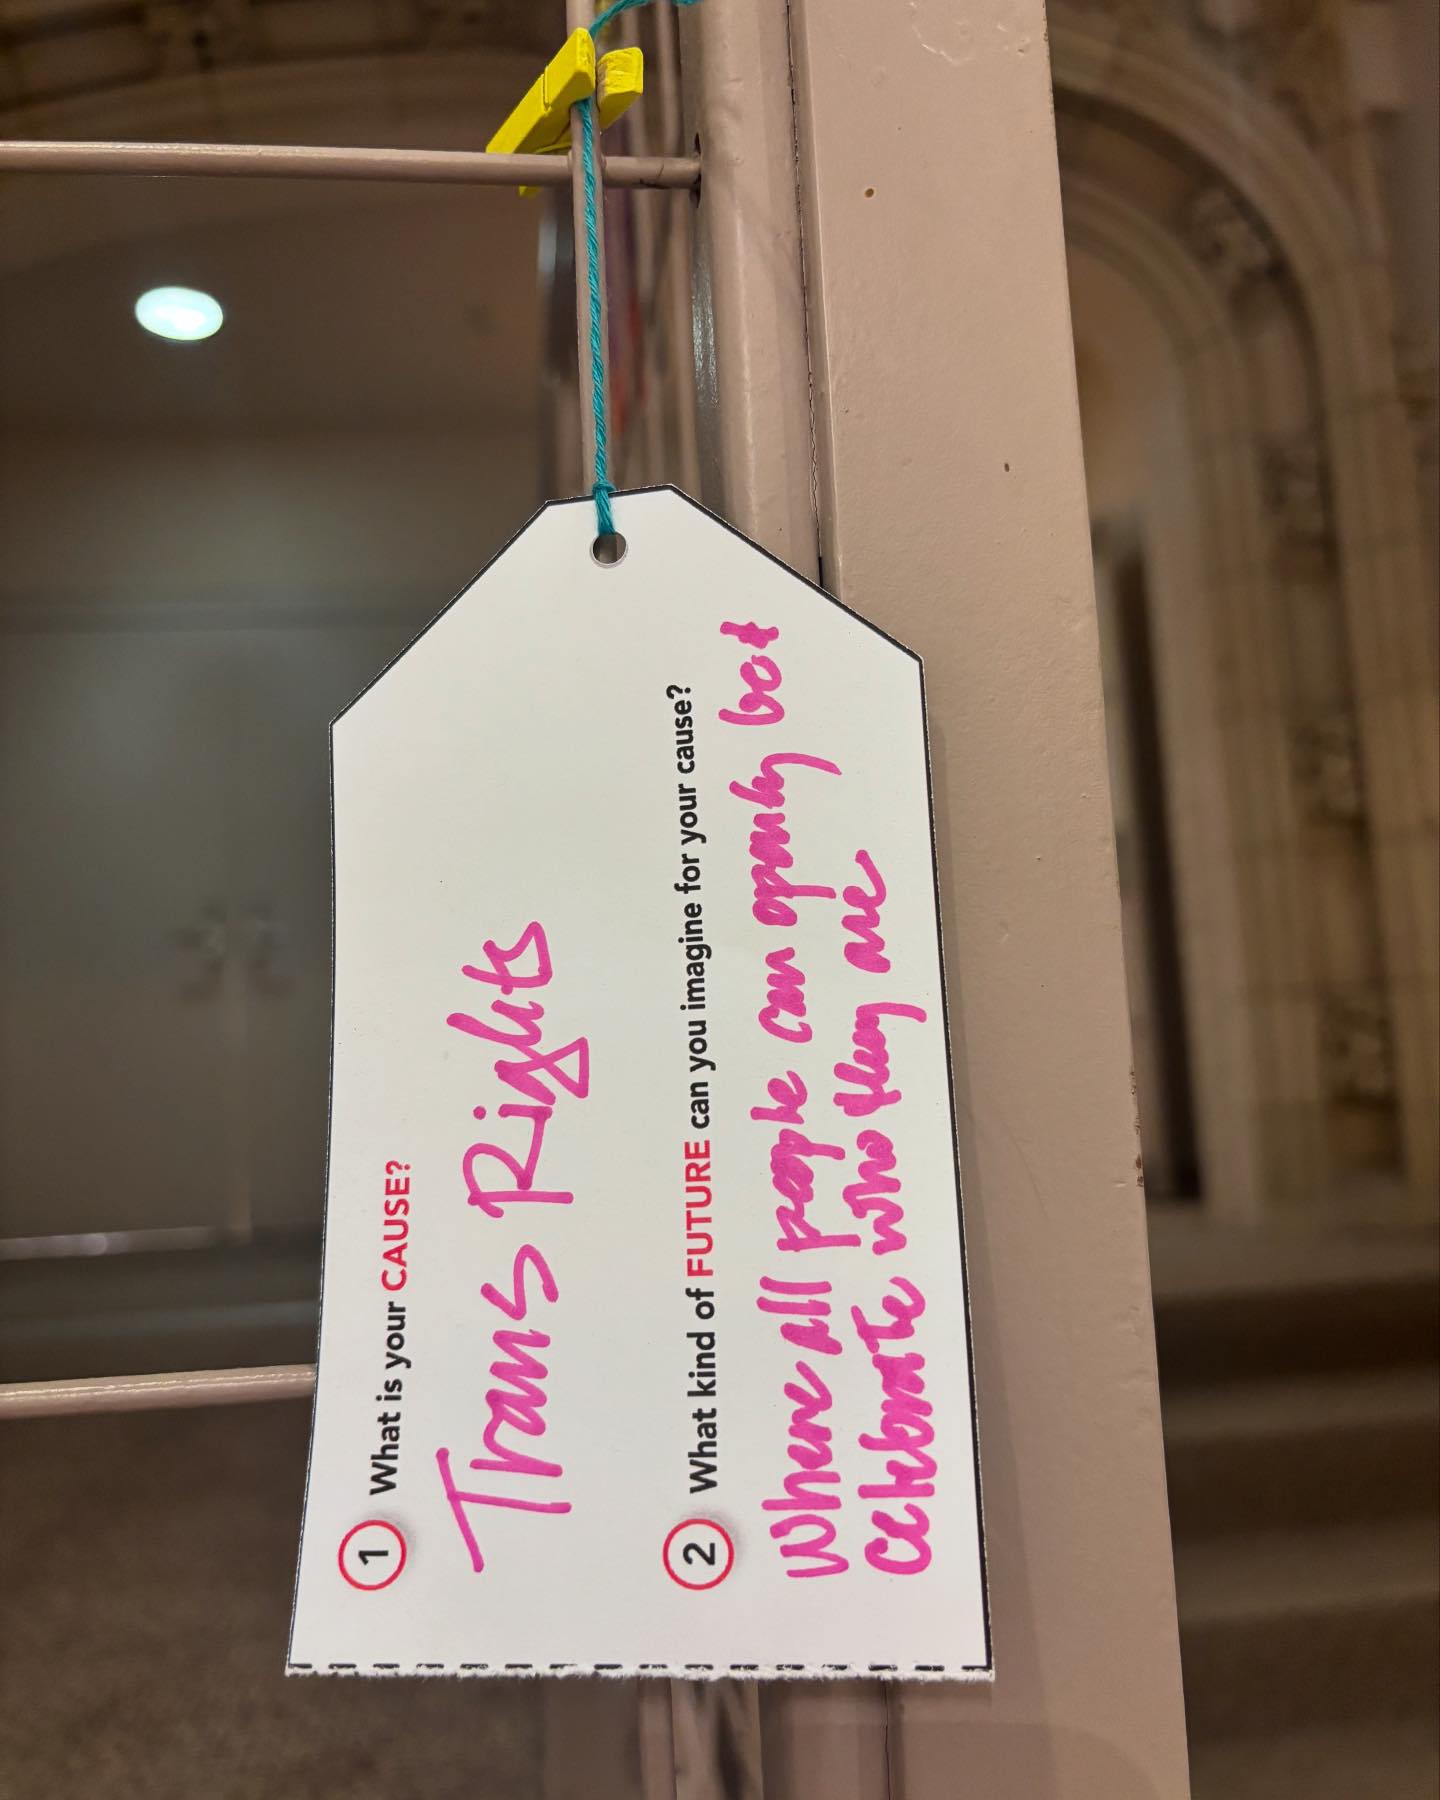 1 What is your CAUSE?
Trans Rights
2 What kind of FUTURE can you imagine for your cause?
Where all people can openly be +
Celebrate who they are